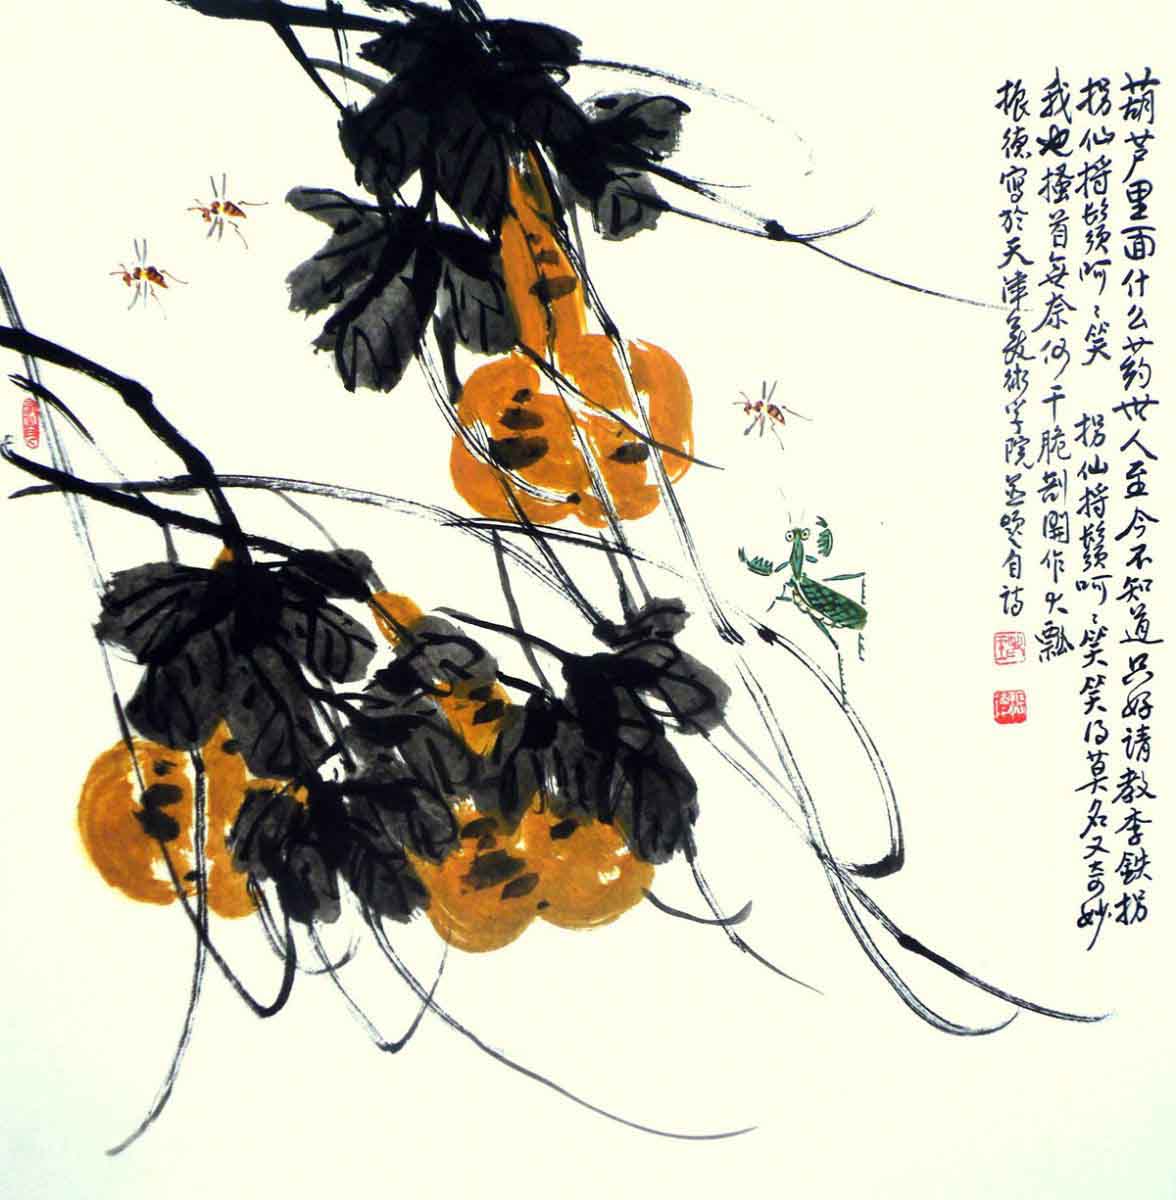 葫芦里面什么药世人至今不知道只好请教李鉄拐
拐仙捋鬚呵呵笑 拐仙捋鬚呵呵笑笑得莫名又奇妙
我也搔首无奈何干脆剖開作大瓢
振德寫於天津美術学院并题自诗